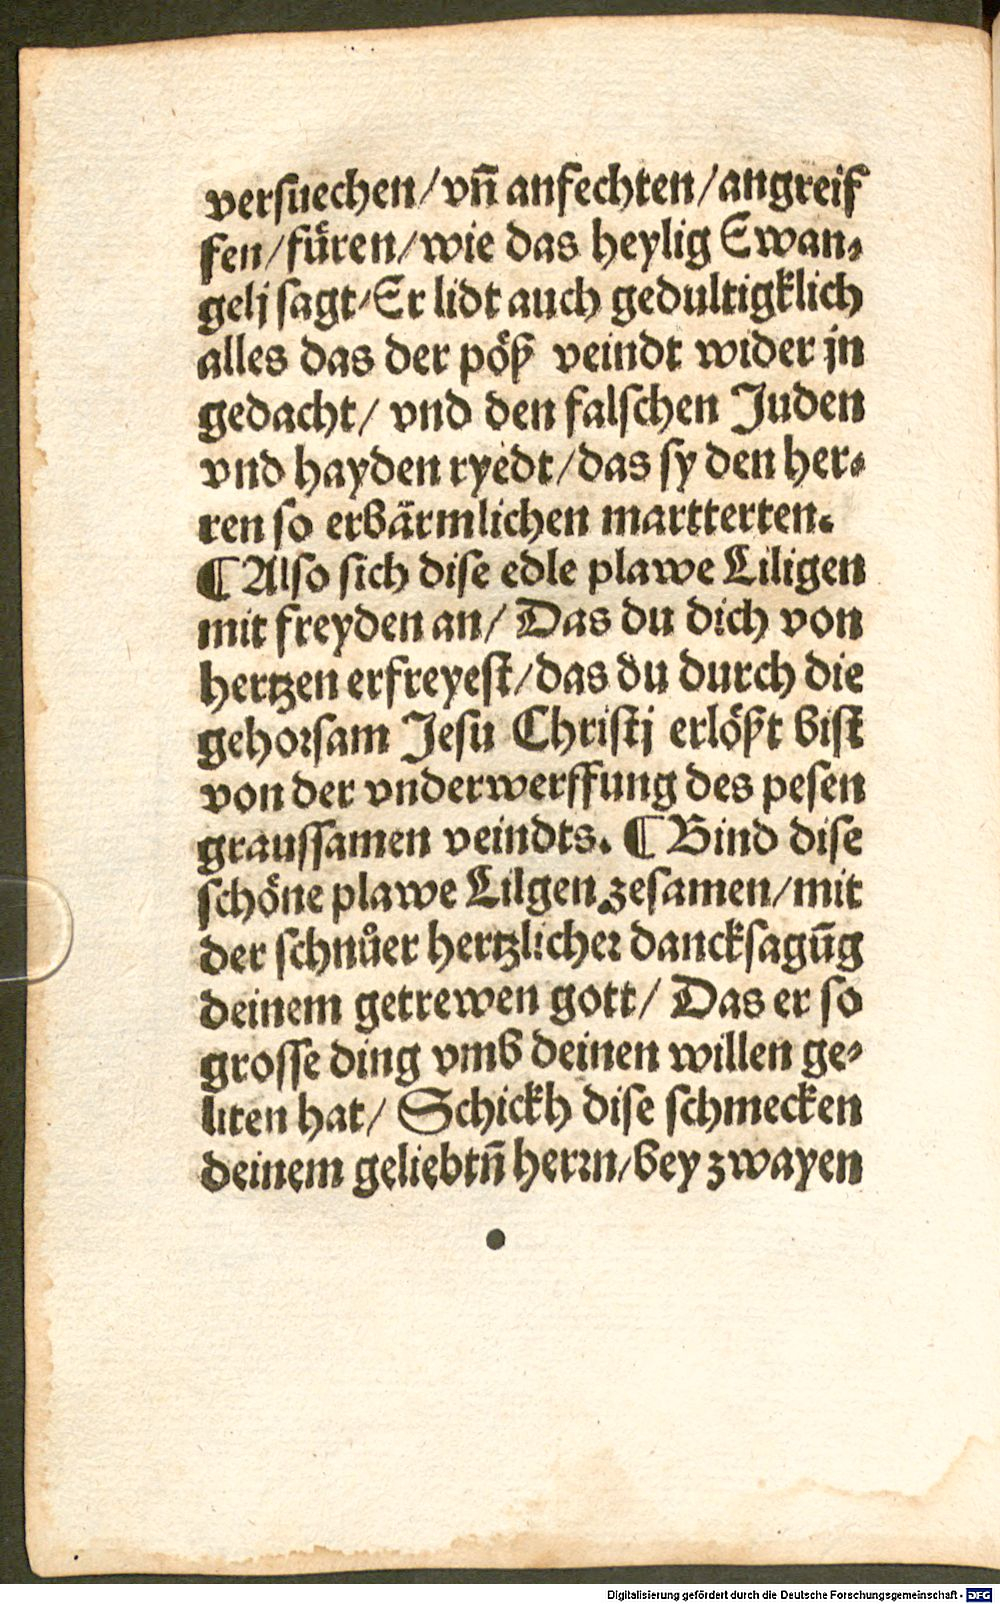 versuechen/ vñ anfechten/ angreif
fen/ füren/ wie das heylig Ewan⸗
gelj sagt/ Er lidt auch gedultigklich
alles das der pöß veindt wider jn
gedacht/ vnd den falschen Juden
vnd hayden ryedt/ das sy den her⸗
ren so erbärmlichen martterten.
¶ Also sich dise edle plawe Liligen
mit freyden an/ Das du dich von
hertzen erfreyest/ das du durch die
gehorsam Jesu Christj erlößt bist
von der vnderwerffung des pesen
graussamen veindts. ¶ Bind dise
schöne plawe Lilgen zesamen/ mit
der schnůer hertzlicher dancksagūg
deinem getrewen gott/ Das er so
grosse ding vmb deinen willen ge⸗
liten hat/ Schickh dise schmecken
deinem geliebtñ herrn/ bey zwayen
Digitalisierung gefördert durch die Deutsche Forschungsgemeinschaft - DFG